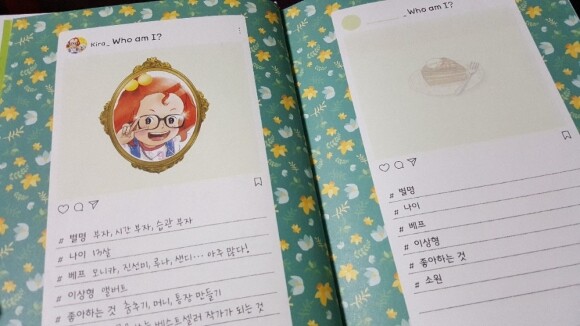 Kira_ Who am I?
# 별명 부자, 시간 부자, 습관 부자
# 나이 13살
# 베프 모니카, 진선미, 루나, 샌디… 아주 많다!
# 이상형 앨버트
# 좋아하는 것 춤추기, 머니, 통장 만들기
베스트셀러 작가가 되는 것
_Who am I?
# 별명
# 나이
# 베프
# 이상형
# 좋아하는 것
# 소원